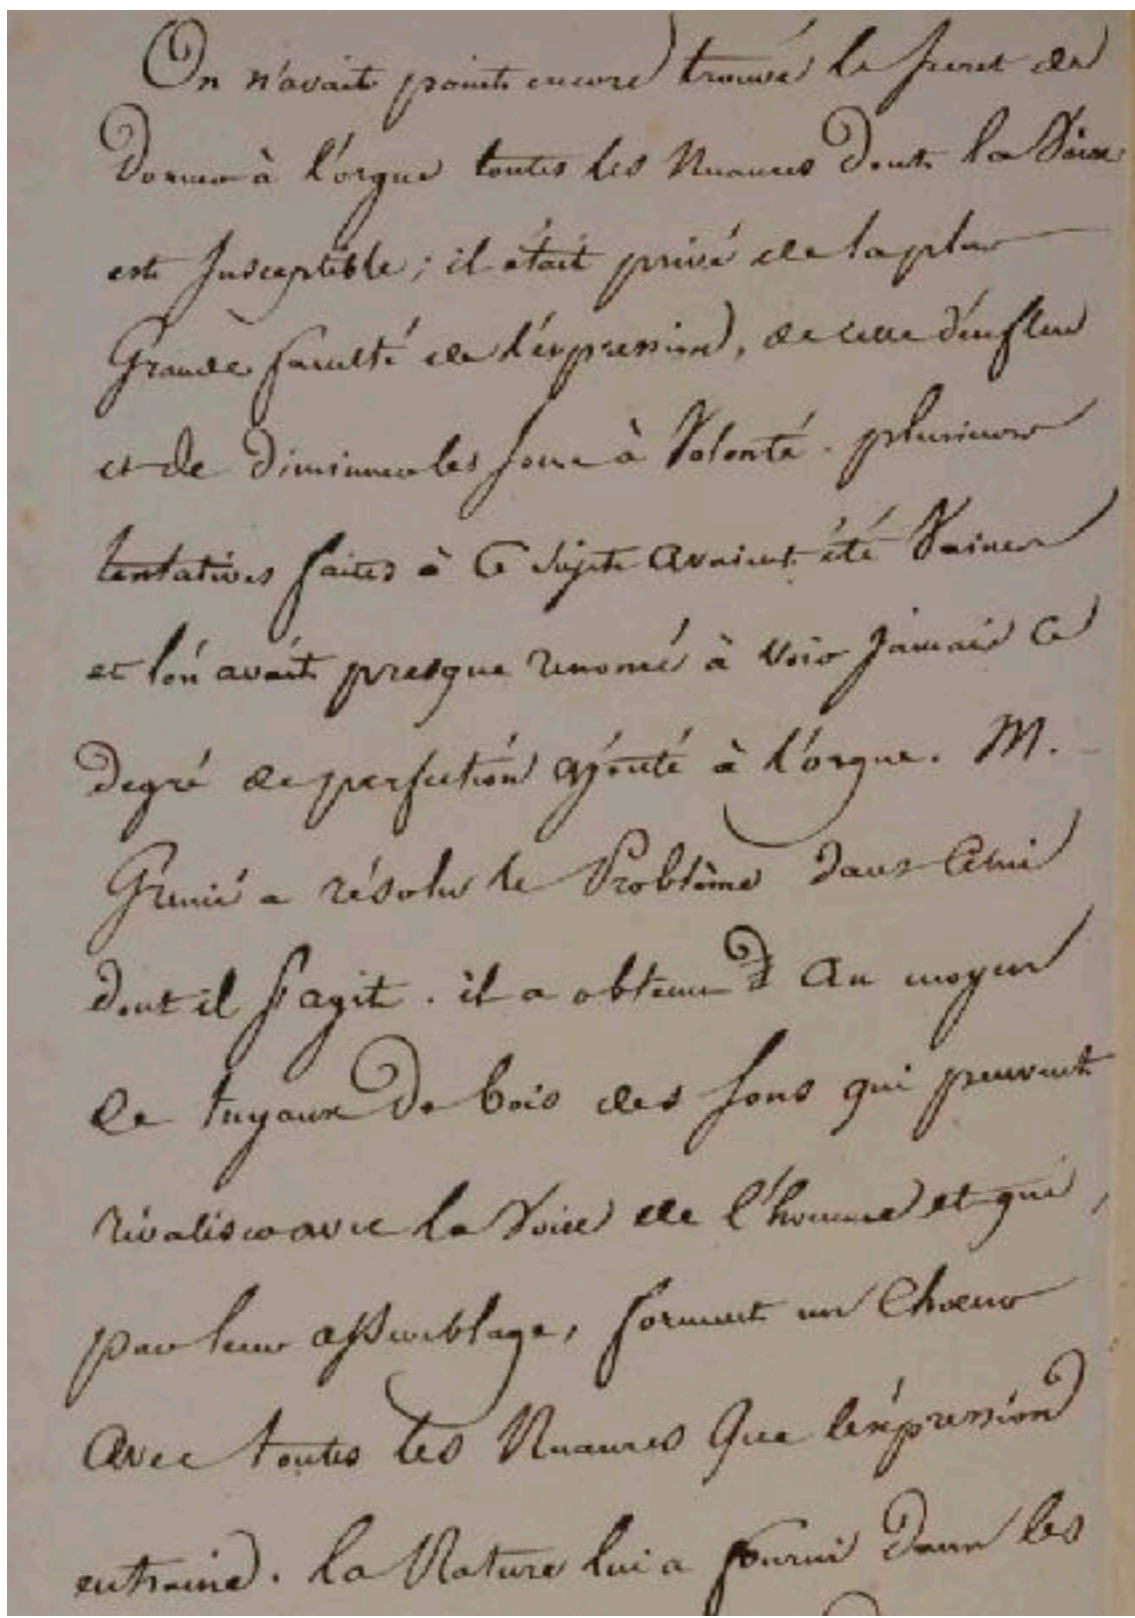 On n'avait point encore trouvé le secret de
donner à l'orgue toutes les Nuances dont la Voix
est susceptible ; il était privé de la plus
Grande faculté de l'expression, de celle d'enfler
et de diminuer les sons à Volonté. plusieurs
tentatives faites à ce sujet avaient été Vaines
et l'on avait presque renoncé à voir jamais ce
degré de perfection ajouté à l'orgue. M.
Grenié a résolu le Problême dans celui
dont il s'agit. il a obtenu au moyen
de tuyaux de bois des sons qui peuvent
rivaliser avec la Voix de l'homme et qui,
par leur assemblage, forment un Choeur
avec toutes les Nuances que l'expression
entraine. la Nature lui a fourni dans les